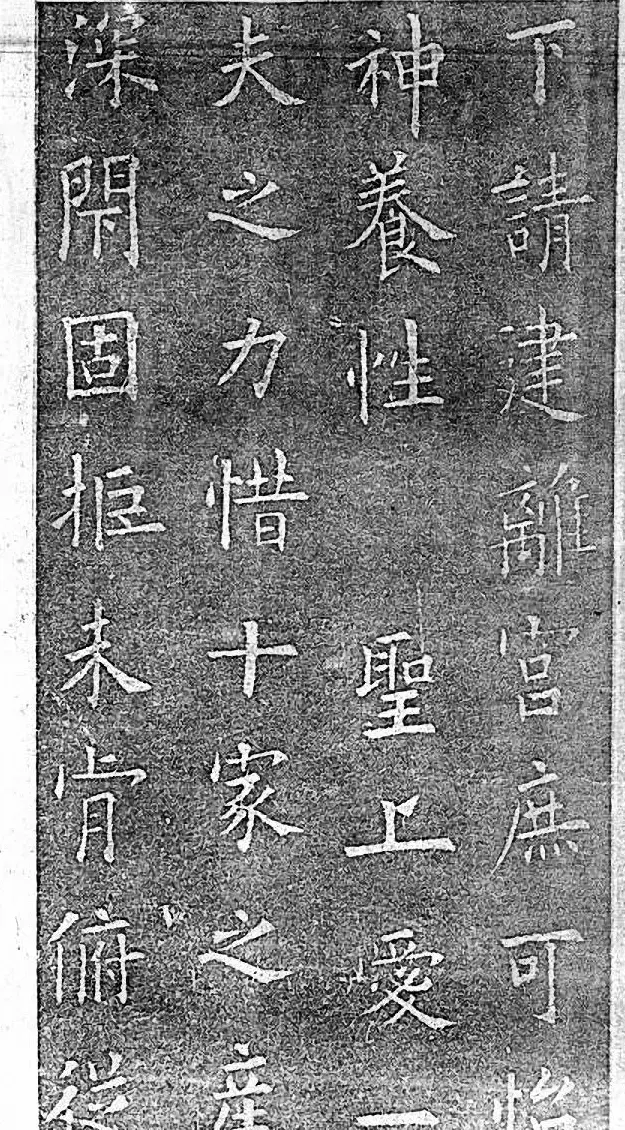 下請建離宮庶可怡
神養性聖上愛一
夫之力惜十家之產
深閇固拒未肯俯從